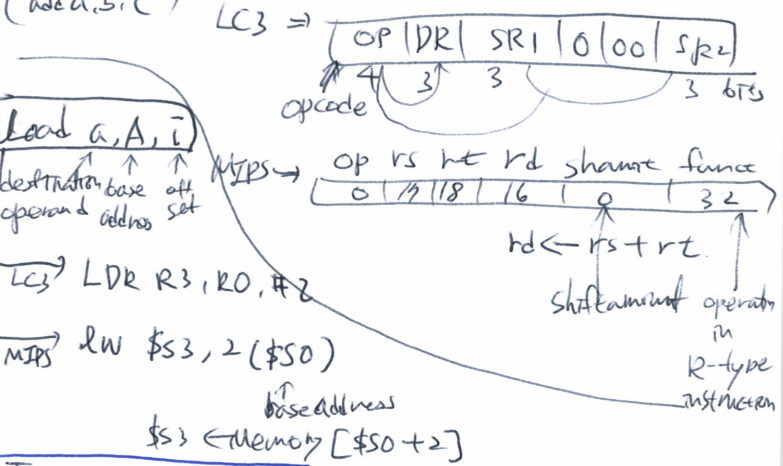 (add a, b, c)
LC3 ⇒ OP | DR | SR1 | 0 | 00 | SR2
4 3 3 3 bits
opcode
Load a, A, i
destination operand
base address
offset
MIPS → op rs rt rd shamt funct
0 17 18 16 0 32
rd ← rs + rt
shift amount
operation in R-type instruction
LC3 LDR R3, R0, #2
MIPS lw $s3, 2($s0)
base address
$s3 ← Memory [$s0 + 2]